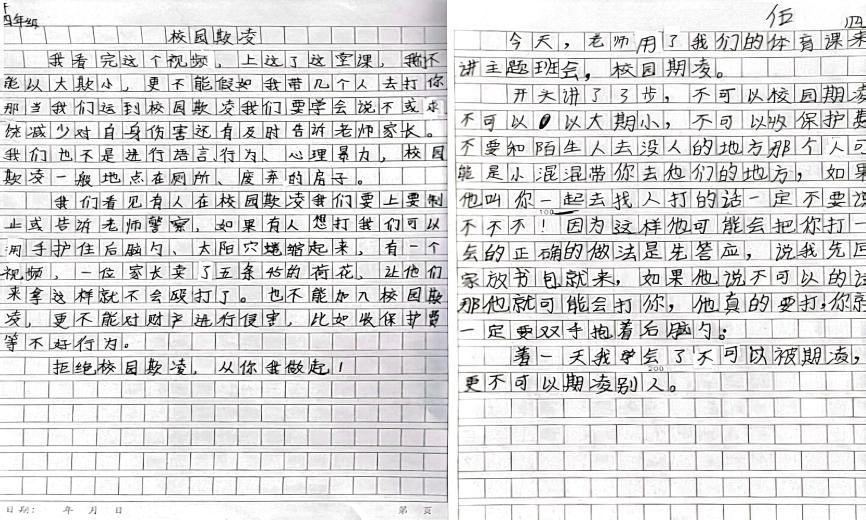 四年级
校园欺凌
我看完这个视频，上这了这堂课，我不
能以大欺小，更不能假如我带几个人去打你
那当我们运到校园欺凌我们要学会说不或求
饶减少对自身伤害还有及时告诉老师家长。
我们也不是进行语言、行为、心理暴力，校园
欺凌一般地点在厕所、废弃的房子。
我们看见有人在校园欺凌我们要上要制
止或告诉老师警察，如果有人想打我们可以
用手护住后脑勺、太阳穴蜷缩起来，有一个
视频，一位家长卖了五条的荷花，让他们
来拿这样就不会殴打了。也不能加入校园欺
凌，更不能对财产进行侵害，比如收保护费
等不好行为。
拒绝校园欺凌，从你我做起！
日期： 年 月 日
第 页
伍
四
今天，老师用了我们的体育课来
讲主题班会，校园期凌。
开头讲了了步，不可以校园期凌
不可以以大期小，不可以收保护费
不要和陌生人去没人的地方那个人可
能是小混混带你去他们的地方，如果
他叫你一起去找人打的话一定不要
100
不不不！因为这样他可能会把你打一
会的正确的做法是先答应，说我先回
家放书包就来，如果他说不可以的话
那他就可能会打你，他真的要打，你
一定要双手抱着后脑勺；
着一天我学会了不可以被期凌，
200
更不可以期凌别人。